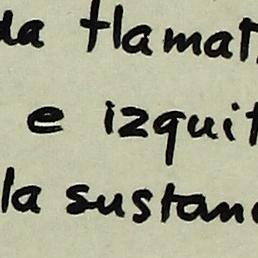 da tlamat
e izquit
la sustan